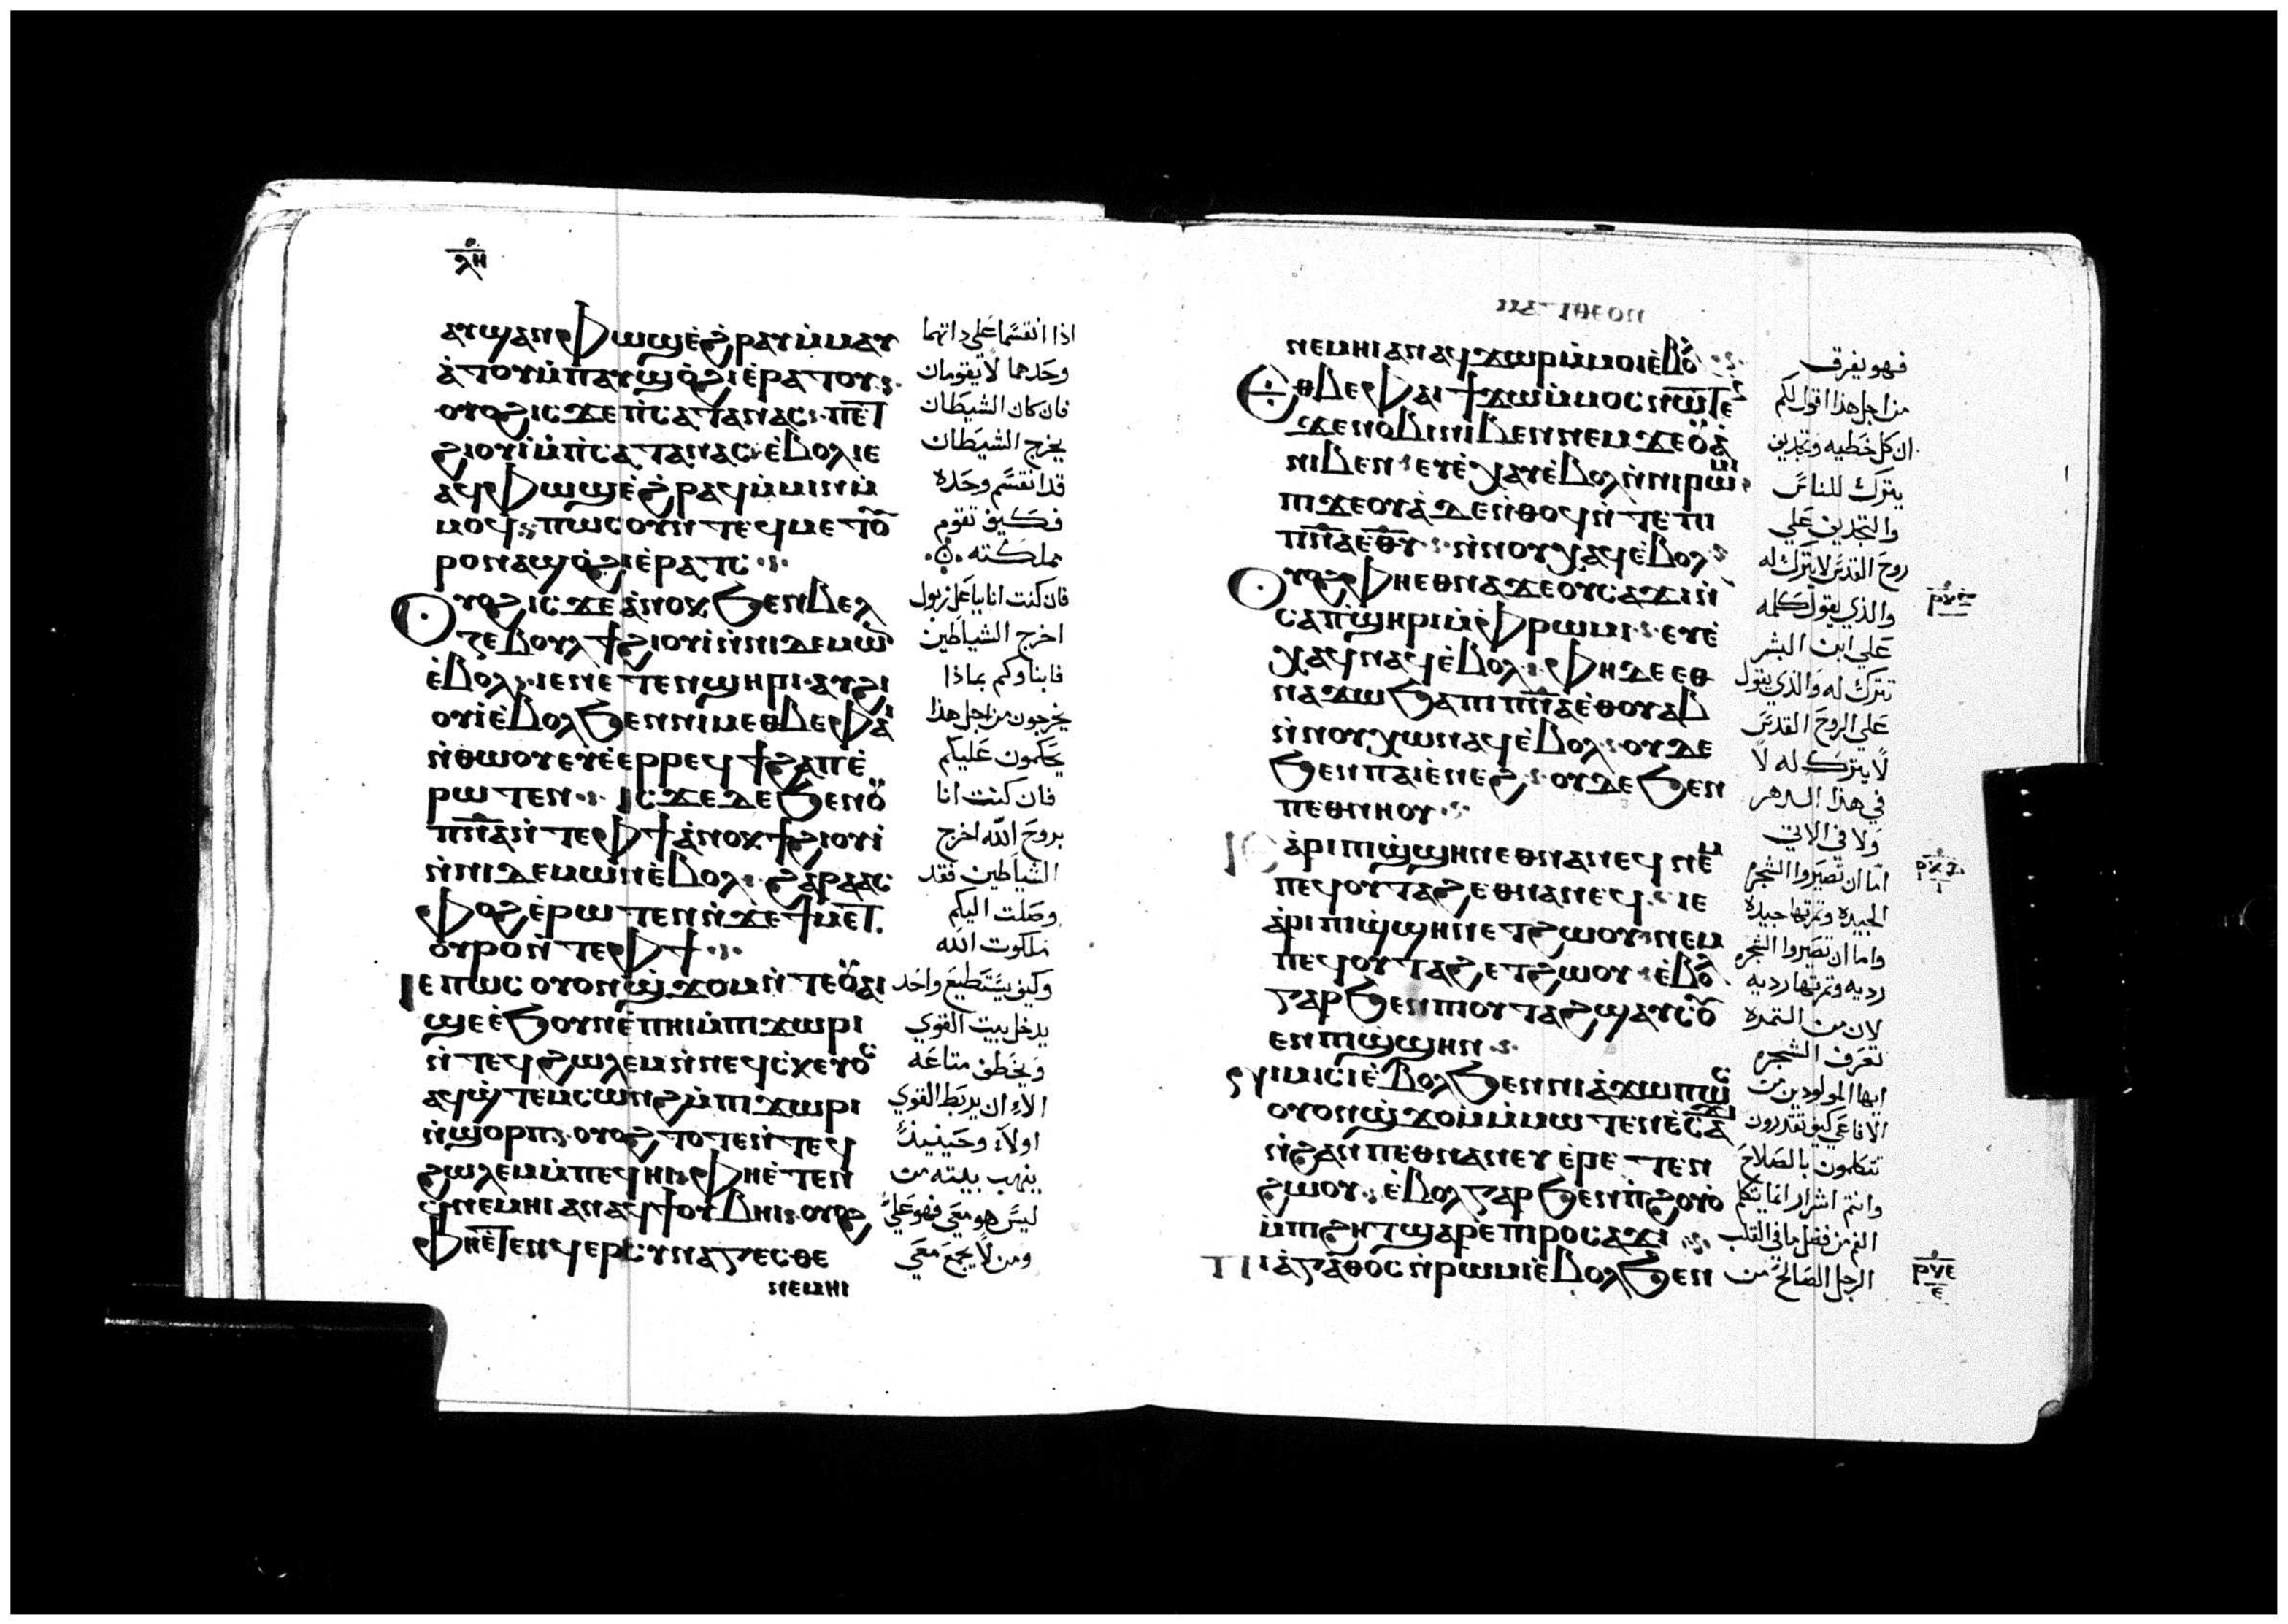 ⲗⲏ
ⲁⲩϣⲁⲛⲫⲱϣ ⲉ̀ϩⲣⲁⲩ ⲙ̀ⲙⲁⲩ
ⲁ̀ⲧⲟⲩ ⲙ̀ⲡⲁⲩϣ ⲟ̀ϩⲓ ⲉ̀ⲣⲁⲧⲟⲩ
ⲟⲩⲟϩ ⲓⲥϫⲉ ⲡ̀ⲥⲁⲧⲁⲛⲁⲥ ⲡⲉⲧ
ϩⲓⲟⲩⲓ̀ ⲙ̀ⲡ̀ⲥⲁⲧⲁⲛⲁⲥ ⲉ̀ⲃⲟⲗ ⲓⲉ
ⲁϥⲫⲱϣ ⲉ̀ϩⲣⲁϥ ⲙ̀ⲙⲓⲛ ⲙ̀
ⲙⲟϥ ⲡⲱⲥ ⲟⲩⲛ ⲧⲉϥⲙⲉⲧⲟⲩ
ⲣⲟ ⲛⲁϣ ⲟ̀ϩⲓ ⲉ̀ⲣⲁⲧⲥ
ⲟⲩⲟϩ ⲓⲥϫⲉ ⲁ̀ⲛⲟⲕ ϧⲉⲛ ⲃⲉⲗ
ⲍⲉⲃⲟⲩⲗ ϯϩⲓⲟⲩⲓ̀ ⲛ̀ⲛⲓⲇⲉⲙⲱⲛ
ⲉ̀ⲃⲟⲗ ⲓⲉ ⲛⲉⲧⲉⲛϣⲏⲣⲓ ⲁⲩϩⲓ
ⲟⲩⲓ̀ ⲉ̀ⲃⲟⲗ ϧⲉⲛ ⲛⲓⲙ ⲉⲑⲃⲉ ⲫⲁⲓ
ⲛ̀ⲑⲱⲟⲩ ⲉⲩⲉ̀ⲉⲣⲣⲉϥϯϩⲁⲡ ⲉ̀
ⲣⲱⲧⲉⲛ ⲓⲥϫⲉ ⲇⲉ ϧⲉⲛ ⲟⲩ
ⲡ̅ⲛ̅ⲁ̅ ⲛ̀ⲧⲉ ⲫϯ ⲁ̀ⲛⲟⲕ ϯϩⲓⲟⲩⲓ̀
ⲛ̀ⲛⲓⲇⲉⲙⲱⲛ ⲉ̀ⲃⲟⲗ ϩⲁⲣⲁ ⲁⲥ
ⲫⲟϩ ⲉ̀ⲣⲱⲧⲉⲛ ⲛ̀ϫⲉ ϯⲙⲉⲧ
ⲟⲩⲣⲟ ⲛ̀ⲧⲉ ⲫϯ
ⲓⲉ ⲡⲱⲥ ⲟⲩⲟⲛ ϣ̀ϫⲟⲙ ⲛ̀ⲧⲉ ⲟⲩⲁⲓ
ϣⲉ ⲉ̀ϧⲟⲩⲛ ⲉ̀ⲡⲏⲓ ⲙ̀ⲡⲓϫⲱⲣⲓ
ⲛ̀ⲧⲉϥϩⲱⲗⲉⲙ ⲛ̀ⲛⲉϥⲥⲕⲉⲩⲟⲥ
ⲁϥϣ̀ⲧⲉⲙⲥⲱⲛϩ ⲙ̀ⲡⲓϫⲱⲣⲓ
ⲛ̀ϣⲟⲣⲡ ⲟⲩⲟϩ ⲧⲟⲧⲉ ⲛ̀ⲧⲉϥ
ϩⲱⲗⲉⲙ ⲙ̀ⲡⲉϥⲏⲓ ⲫⲏ ⲉ̀ⲧⲉⲛ
ϥ̀ⲛⲉⲙⲏⲓ ⲁⲛ ⲁϥϯ ⲟⲩⲃⲏⲓ ⲟⲩⲟϩ
ⲫⲏ ⲉ̀ⲧⲉⲛϥⲉⲣⲥⲩⲛⲁⲅⲉⲥⲑⲉ
ⲛⲉⲙⲏⲓ
اذا انقسما علي ذاتهما
وحدهما لا يقومان
فان كان الشيطان
يخرج الشيطان
قد انقسم وحده
فكيف تقوم
مملكته
فان كنت انا بباعلزبول
اخرج الشياطين
فابناوكم بماذا
يخرجون من اجل هذا
يحكمون عليكم
فان كنت انا
بروح الله اخرج
الشياطين فقد
وصلت اليكم
ملكوت الله
وكيف يستطيع واحد
يدخل بيت القوي
ويخطف متاعه
الا ان يربط القوي
اولا وحينيذ
ينهب بيته من
ليس هو معي فهو علي
ومن لا يجمع معي
ⲛⲉⲙⲏⲓ ⲁⲛ ⲁϥϫⲱⲣ ⲙ̀ⲙⲟⲓ ⲉ̀ⲃⲟⲗ
ⲉⲑⲃⲉ ⲫⲁⲓ ϯϫⲱ ⲙ̀ⲙⲟⲥ ⲛⲱⲧⲉⲛ
ϫⲉ ⲛⲟⲃⲓ ⲛⲓⲃⲉⲛ ⲛⲉⲙ ϫⲉⲟⲩⲁ̀
ⲛⲓⲃⲉⲛ ⲉⲩⲉ̀ⲭⲁⲩ ⲉ̀ⲃⲟⲗ ⲛ̀ⲛⲓⲣⲱⲙⲓ
ⲡⲓϫⲉⲟⲩⲁ̀ ⲇⲉ ⲛ̀ⲑⲟϥ ⲛ̀ⲧⲉ ⲡⲓ
ⲡ̅ⲛ̅ⲁ̅ ⲉⲑⲩ ⲛ̀ⲛⲟⲩⲭⲁϥ ⲉ̀ⲃⲟⲗ
ⲟⲩⲟϩ ⲫⲏ ⲉⲑⲛⲁϫⲉ ⲟⲩⲥⲁϫⲓ ⲛ̀
ⲥⲁ ⲡ̀ϣⲏⲣⲓ ⲙ̀ⲫⲣⲱⲙⲓ ⲉⲩⲉ̀
ⲭⲁϥ ⲛⲁϥ ⲉ̀ⲃⲟⲗ ⲫⲏ ⲇⲉ ⲉⲑ
ⲛⲁϫⲱ ϧⲁ ⲡⲓⲡ̅ⲛ̅ⲁ̅ ⲉ̀ⲑⲟⲩⲁⲃ
ⲛ̀ⲛⲟⲩⲭⲱ ⲛⲁϥ ⲉ̀ⲃⲟⲗ ⲟⲩⲇⲉ
ϧⲉⲛ ⲡⲁⲓⲉ̀ⲛⲉϩ ⲟⲩⲇⲉ ϧⲉⲛ
ⲡⲉⲑⲛⲏⲟⲩ
ⲓⲉ ⲁ̀ⲣⲓ ⲡⲓϣ̀ϣⲏⲛ ⲉⲑⲛⲁⲛⲉϥ ⲛⲉⲙ
ⲡⲉϥⲟⲩⲧⲁϩ ⲉⲑⲛⲁⲛⲉϥ ⲓⲉ
ⲁ̀ⲣⲓ ⲡⲓϣ̀ϣⲏⲛ ⲉⲧϩⲱⲟⲩ ⲛⲉⲙ
ⲡⲉϥⲟⲩⲧⲁϩ ⲉⲧϩⲱⲟⲩ ⲉ̀ⲃⲟⲗ
ⲅⲁⲣ ϧⲉⲛ ⲡⲓⲟⲩⲧⲁϩ ϣⲁⲩⲥⲟⲩ
ⲉⲛ ⲡⲓϣ̀ϣⲏⲛ
ⲛⲓⲙⲓⲥⲓ ⲉ̀ⲃⲟⲗ ϧⲉⲛ ⲛⲓⲁ̀ϫⲱ ⲡⲱⲥ
ⲟⲩⲟⲛ ϣ̀ϫⲟⲙ ⲙ̀ⲙⲱⲧⲉⲛ ⲉ̀ⲥⲁϫⲓ
ⲛ̀ϩⲁⲛⲡⲉⲑⲛⲁⲛⲉⲩ ⲉ̀ⲣⲉⲧⲉⲛ
ϩⲱⲟⲩ ⲉ̀ⲃⲟⲗ ⲅⲁⲣ ϧⲉⲛ ⲡ̀ϩⲟⲩⲟ̀
ⲙ̀ⲡⲓϩⲏⲧ ϣⲁⲣⲉ ⲡⲓⲣⲟ ⲥⲁϫⲓ
ⲡⲓⲁ̀ⲅⲁⲑⲟⲥ ⲛ̀ⲣⲱⲙⲓ ⲉ̀ⲃⲟⲗ ϧⲉⲛ
فهو يفرق
من اجل هذا اقول لكم
ان كل خطيه وتجديف
يترك للناس
والتجديف علي
روح القدس لا يترك له
والذي يقول كلمه
علي ابن البشر
تترك له والذي يقول
علي الروح القدس
لا يترك له لا
في هذا الدهر
ولا في الاتي
اما ان تصيروا الشجره
الجيده وثمرتها جيده
واما ان تصيروا الشجره
رديه وثمرتها رديه
لان من الثمره
تعرف الشجره
ايها المولودين من
الافاعي كيف تقدرون
تتكلمون بالصلاح
وانتم اشرار انما يتكلم
الفم من فضل ما في القلب
الرجل الصالح من
ⲣⲕⲅ
ⲣⲕⲉ